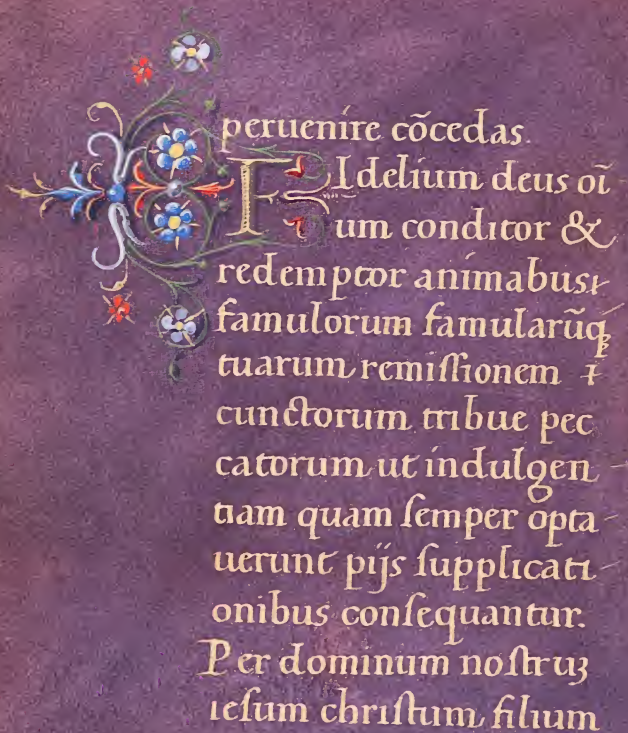 peruenire cōcedas.
FIdelium deus oı̄
um conditor &
redemptor animabus
famulorum famularūq
tuarum remiſſionem
cunctorum tribue pec
catorum ut indulgen
tiam quam ſemper opta
uerunt pijs ſupplicati
onibus conſequantur.
Per dominum noſtruꝫ
ieſum chriſtum filium